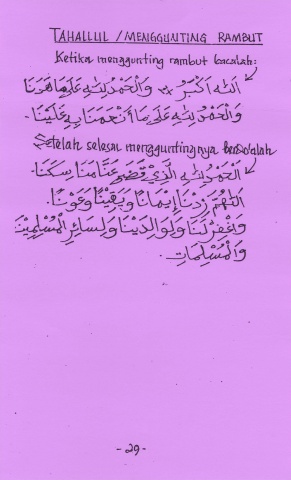 TAHALLUL / MENGGUNTING RAMBUT
Ketika menggunting rambut bacalah:
اَللّٰهُ اَكْبَرُ ٣× وَالْحَمْدُ لِلّٰهِ عَلَى مَا هَدَانَا
وَالْحَمْدُ لِلّٰهِ عَلَى مَا أَنْعَمَنَا بِهِ عَلَيْنَا.
Setelah selesai mengguntingnya berdo'alah
اَلْحَمْدُ لِلّٰهِ الَّذِيْ قَضَى عَنَّا مَنَاسِكَنَا.
اَللّٰهُمَّ زِدْنَا إِيْمَانًا وَيَقِيْنًا وَعَوْنًا.
وَاغْفِرْ لَنَا وَلِوَالِدَيْنَا وَلِسَائِرِ الْمُسْلِمِيْنَ
وَالْمُسْلِمَاتِ.
-29-